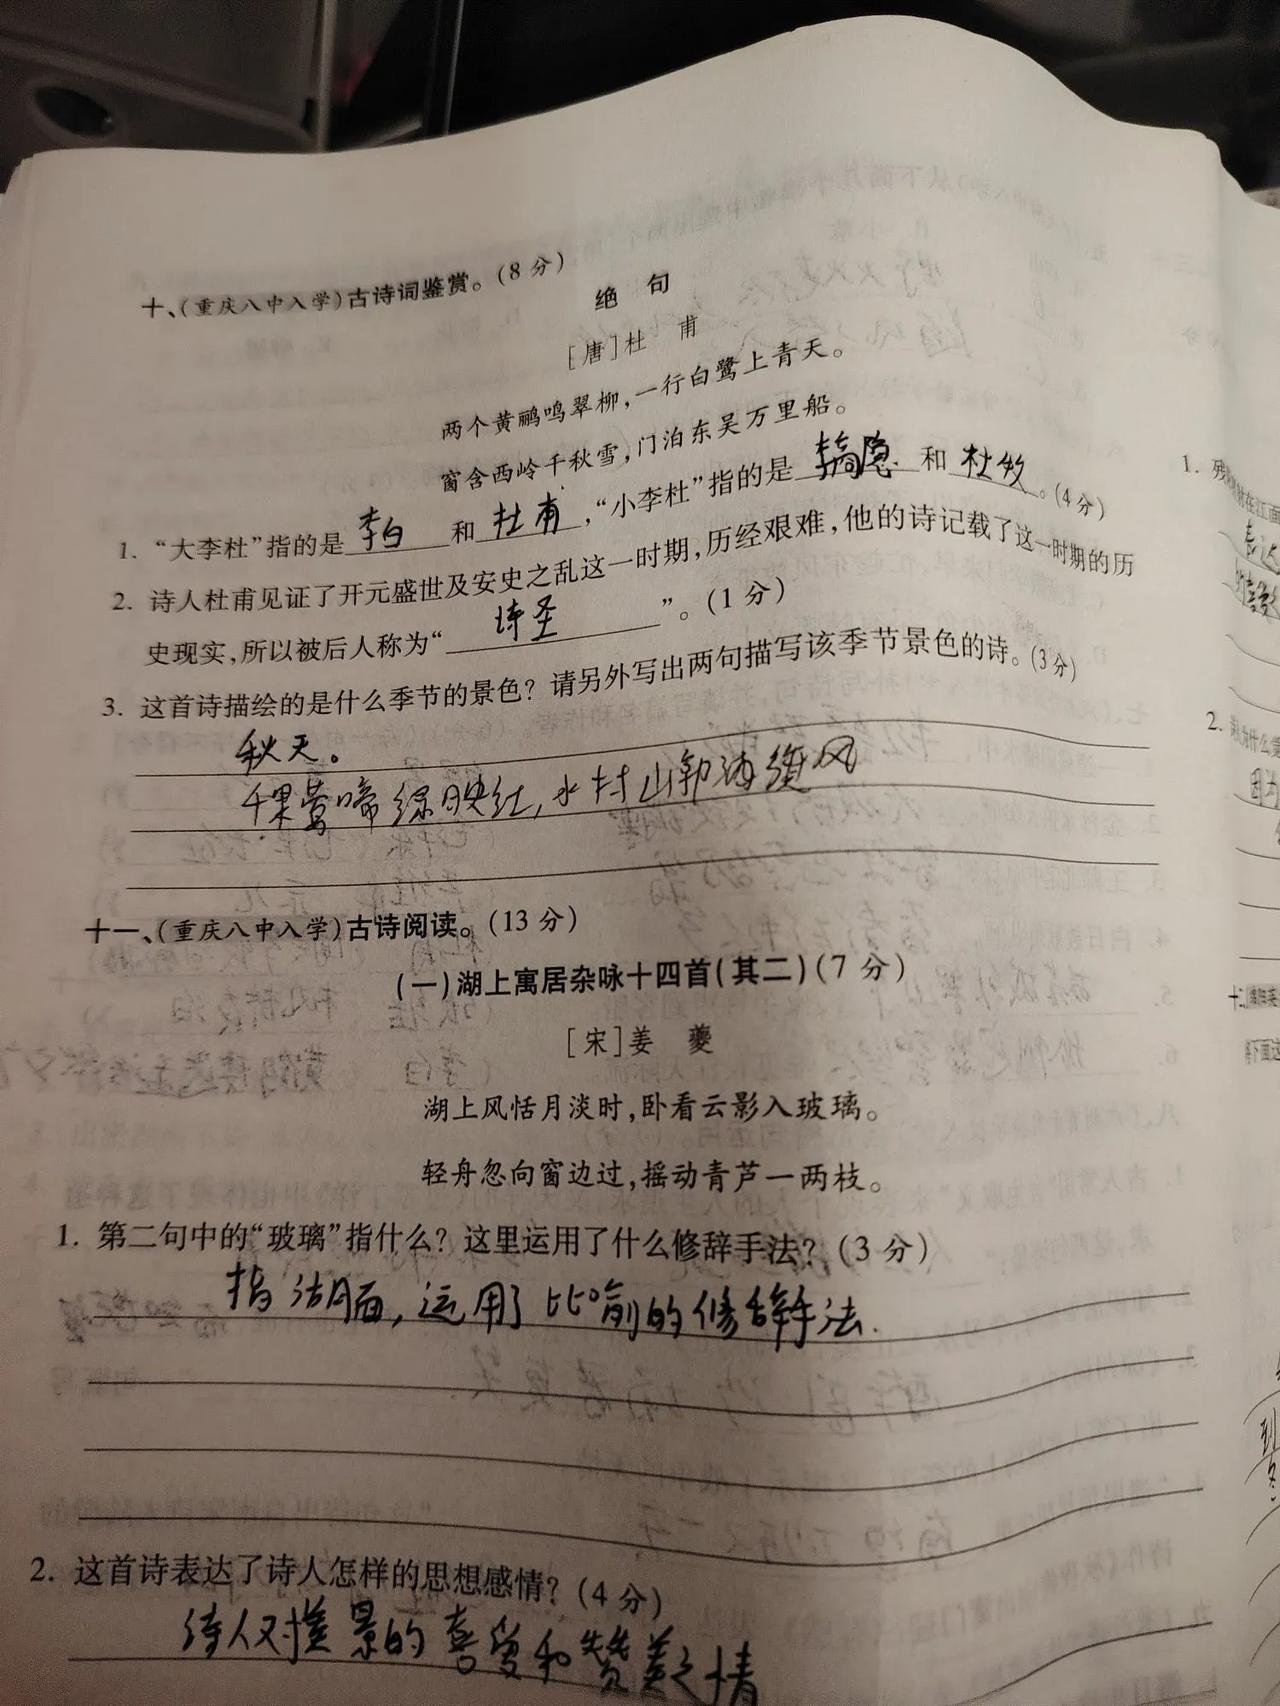 十、(重庆八中入学)古诗词鉴赏。(8分)
绝 句
[唐]杜 甫
两个黄鹂鸣翠柳,一行白鹭上青天。
窗含西岭千秋雪,门泊东吴万里船。
1. “大李杜”指的是 李白 和 杜甫 ,“小李杜”指的是 李商隐 和 杜牧 。(4分)
2. 诗人杜甫见证了开元盛世及安史之乱这一时期,历经艰难,他的诗记载了这一时期的历
史现实,所以被后人称为“ 诗圣 ”。(1分)
3. 这首诗描绘的是什么季节的景色?请另外写出两句描写该季节景色的诗。(3分)
秋天。
千里莺啼绿映红,水村山郭酒旗风
十一、(重庆八中入学)古诗阅读。(13分)
(一)湖上寓居杂咏十四首(其二)(7分)
[宋]姜 夔
湖上风恬月淡时,卧看云影入玻璃。
轻舟忽向窗边过,摇动青芦一两枝。
1. 第二句中的“玻璃”指什么?这里运用了什么修辞手法?(3分)
指湖面,运用了比喻的修辞手法.
2. 这首诗表达了诗人怎样的思想感情?(4分)
诗人对美景的喜爱和赞美之情
1.
表达
2.